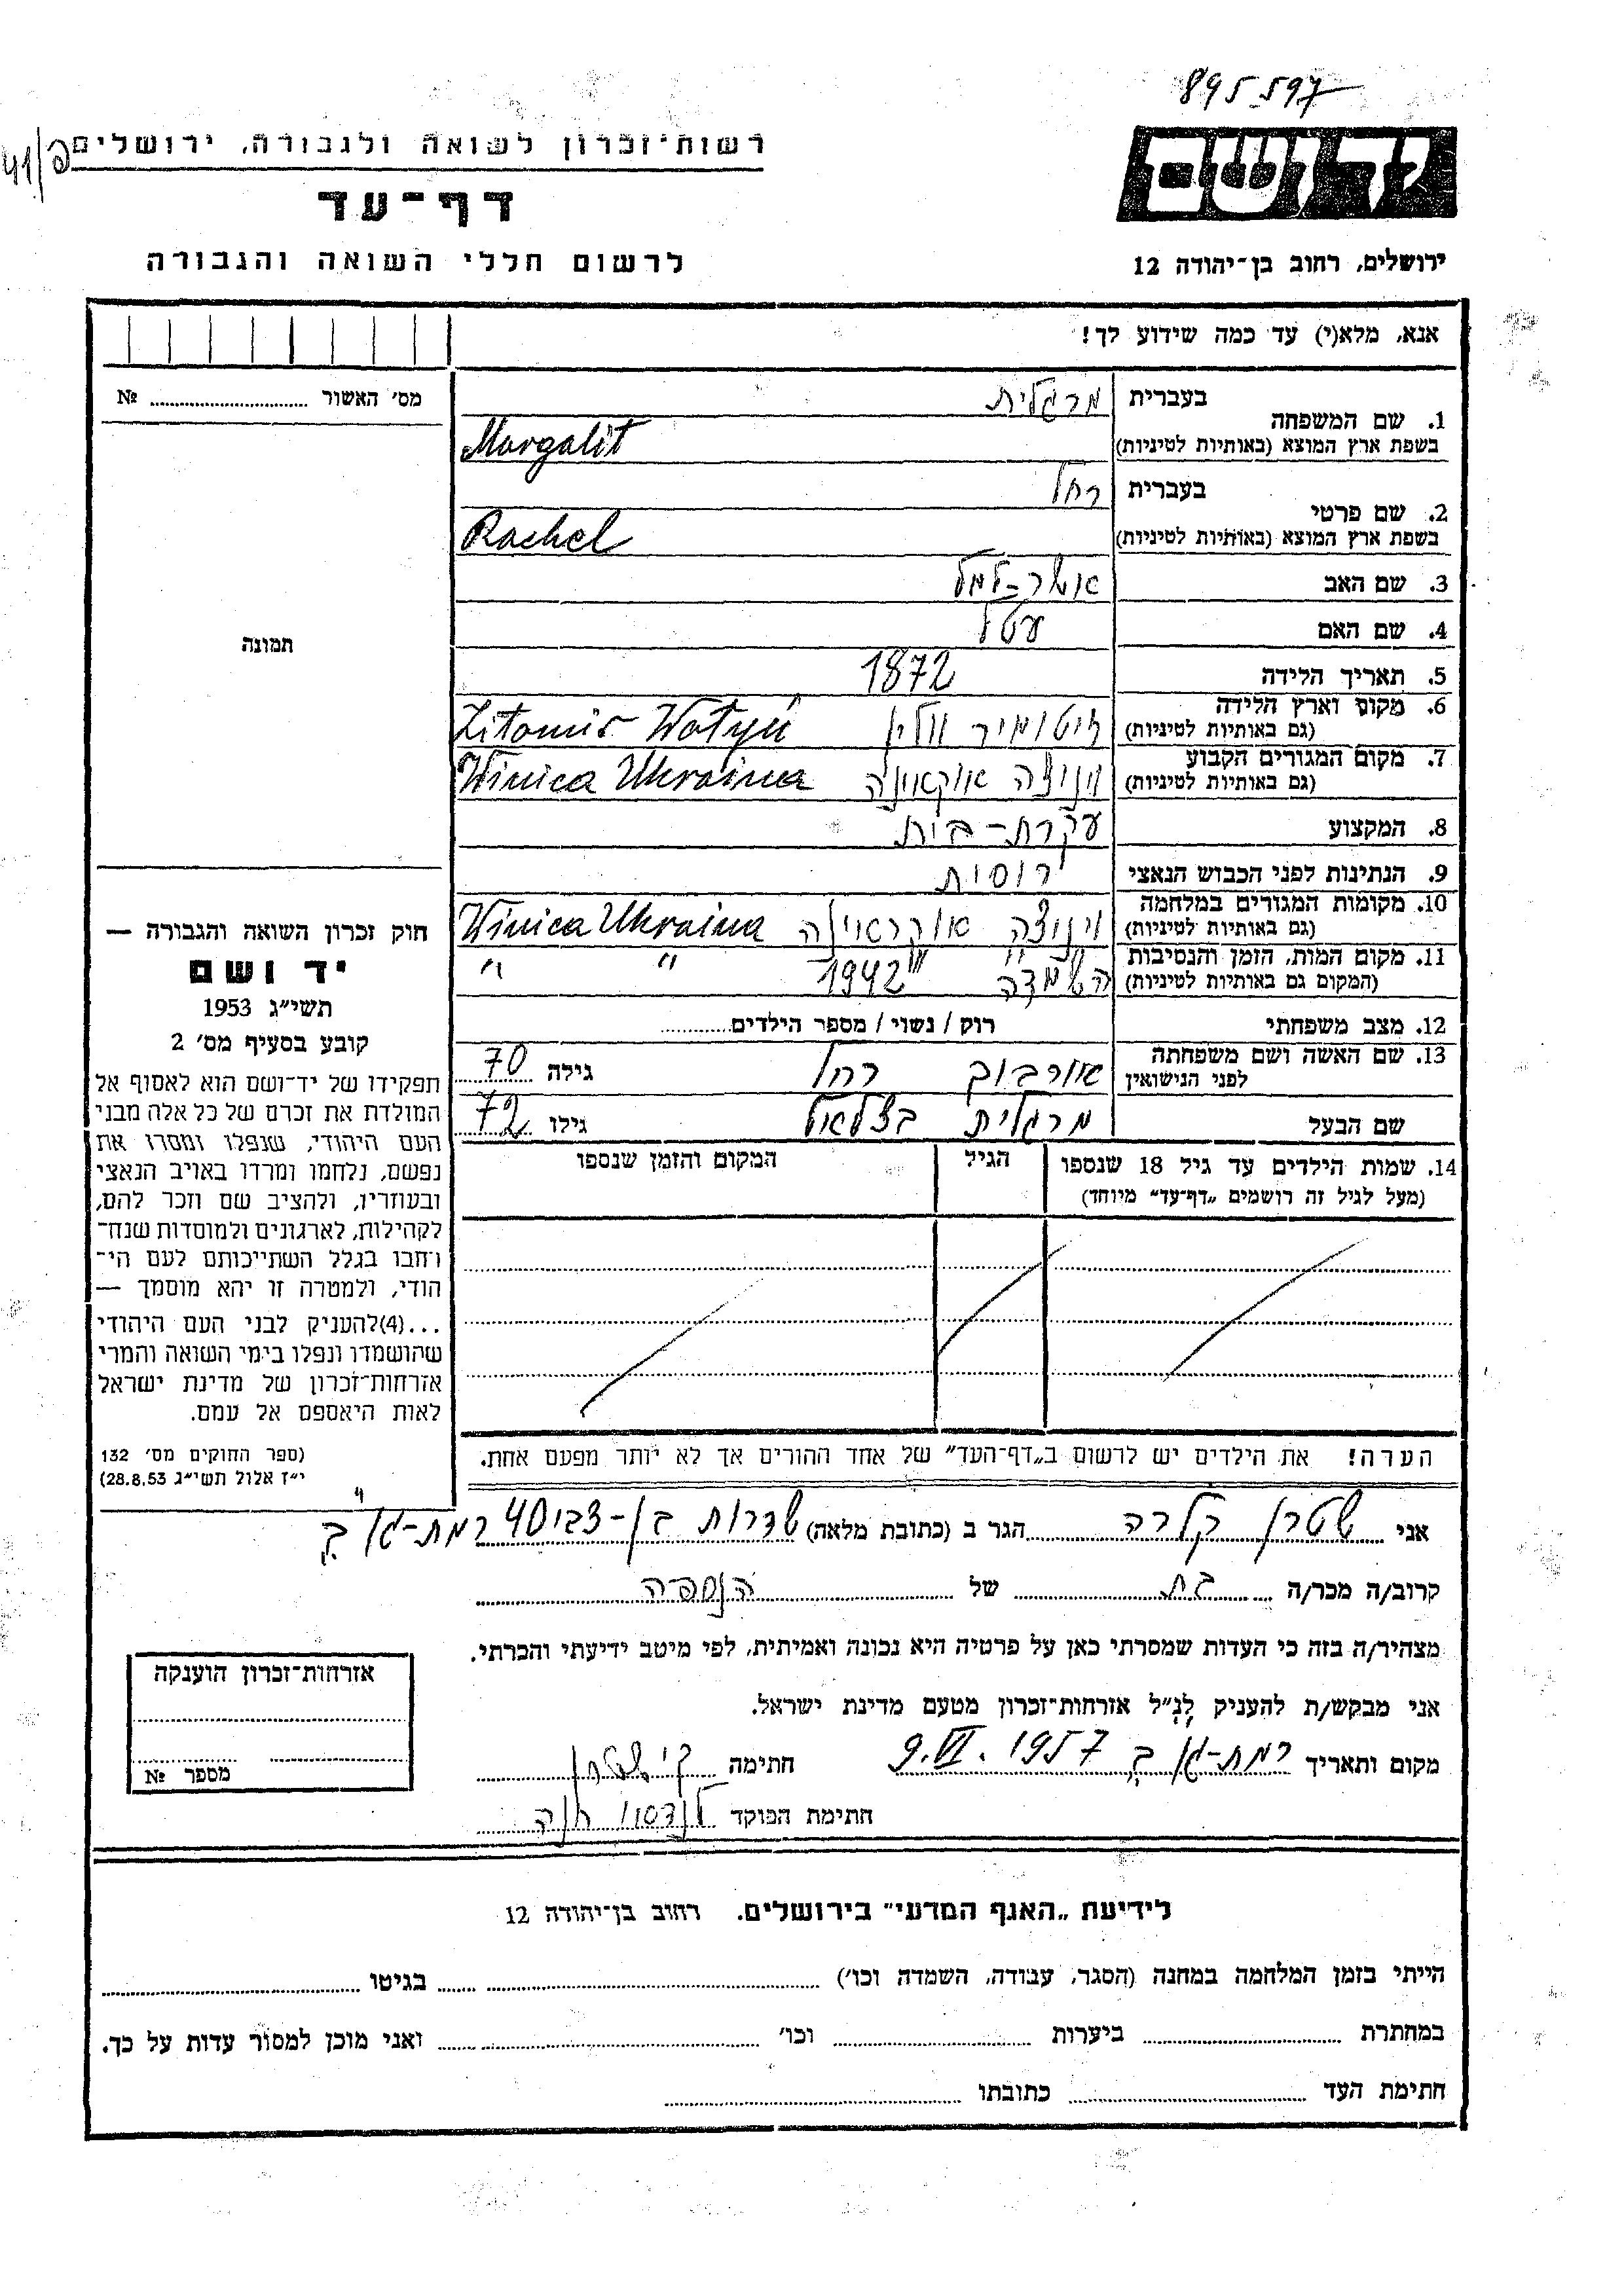 895597
רשות־זכרון לשואה ולגבורה, ירושלים
דף־עד
לרשום חללי השואה והגבורה
יד ושם
ירושלים, רחוב בן־יהודה 12
אנא, מלא(י) עד כמה שידוע לך!
מס׳ האשור № ....................
1. שם המשפחה
בעברית מרגלית
בשפת ארץ המוצא (באותיות לטיניות) Margalit
2. שם פרטי
בעברית רחל
בשפת ארץ המוצא (באותיות לטיניות) Rachel
3. שם האב אשר-למל
4. שם האם עטל
5. תאריך הלידה 1872
6. מקום וארץ הלידה
(גם באותיות לטיניות) זיטומיר וולין Zitomir Wotyń
7. מקום המגורים הקבוע
(גם באותיות לטיניות) ויניצה אוקראינה Winica Ukraina
8. המקצוע עקרת-בית
9. הנתינות לפני הכבוש הנאצי רוסית
10. מקומות המגורים במלחמה
(גם באותיות לטיניות) ויניצה אוקראינה Winica Ukraina
11. מקום המות, הזמן והנסיבות
(המקום גם באותיות לטיניות) השמדה 1942 " "
12. מצב משפחתי רוק / נשוי / מספר הילדים............
13. שם האשה ושם משפחתה
לפני הנישואין אורבוך רחל גילה 70
שם הבעל מרגלית בצלאל גילו 72
14. שמות הילדים עד גיל 18 שנספו הגיל המקום והזמן שנספו
(מעל לגיל זה רושמים „דף־עד״ מיוחד)
הערה! את הילדים יש לרשום ב„דף־העד״ של אחד ההורים אך לא יותר מפעם אחת.
תמונה
חוק זכרון השואה והגבורה —
יד ושם
תשי״ג 1953
קובע בסעיף מס׳ 2
תפקידו של יד־ושם הוא לאסוף אל
המולדת את זכרם של כל אלה מבני
העם היהודי, שנפלו ומסרו את
נפשם, נלחמו ומרדו באויב הנאצי
ובעוזריו, ולהציב שם וזכר להם,
לקהילות, לארגונים ולמוסדות שנח־
רחבו בגלל השתייכותם לעם הי־
הודי, ולמטרה זו יהא מוסמך —
...(4)להעניק לבני העם היהודי
שהושמדו ונפלו בימי השואה והמרי
אזרחות־זכרון של מדינת ישראל
לאות היאספם אל עמם.
(ספר החוקים מס׳ 132
י״ז אלול תשי״ג 28.8.53)
אני שטרן קלרה הגר ב (כתובת מלאה) שדרות בן-צבי 40 רמת-גן ב'
קרוב/ה מכר/ה בת של הנספה
מצהיר/ה בזה כי העדות שמסרתי כאן על פרטיה היא נכונה ואמיתית, לפי מיטב ידיעתי והכרתי.
אני מבקש/ת להעניק לנ״ל אזרחות־זכרון מטעם מדינת ישראל.
מקום ותאריך רמת-גן ב' 9.VI.1957 חתימה ק' שטרן
חתימת הפוקד לנדסוי חנה
אזרחות־זכרון הוענקה
מספר №
לידיעת „האגף המדעי״ בירושלים. רחוב בן־יהודה 12
הייתי בזמן המלחמה במחנה (הסגר, עבודה, השמדה וכו׳) .................... בגיטו ....................
במחתרת .................... ביערות .................... וכו׳ .................... ואני מוכן למסור עדות על כך.
חתימת העד .................... כתובתו ....................